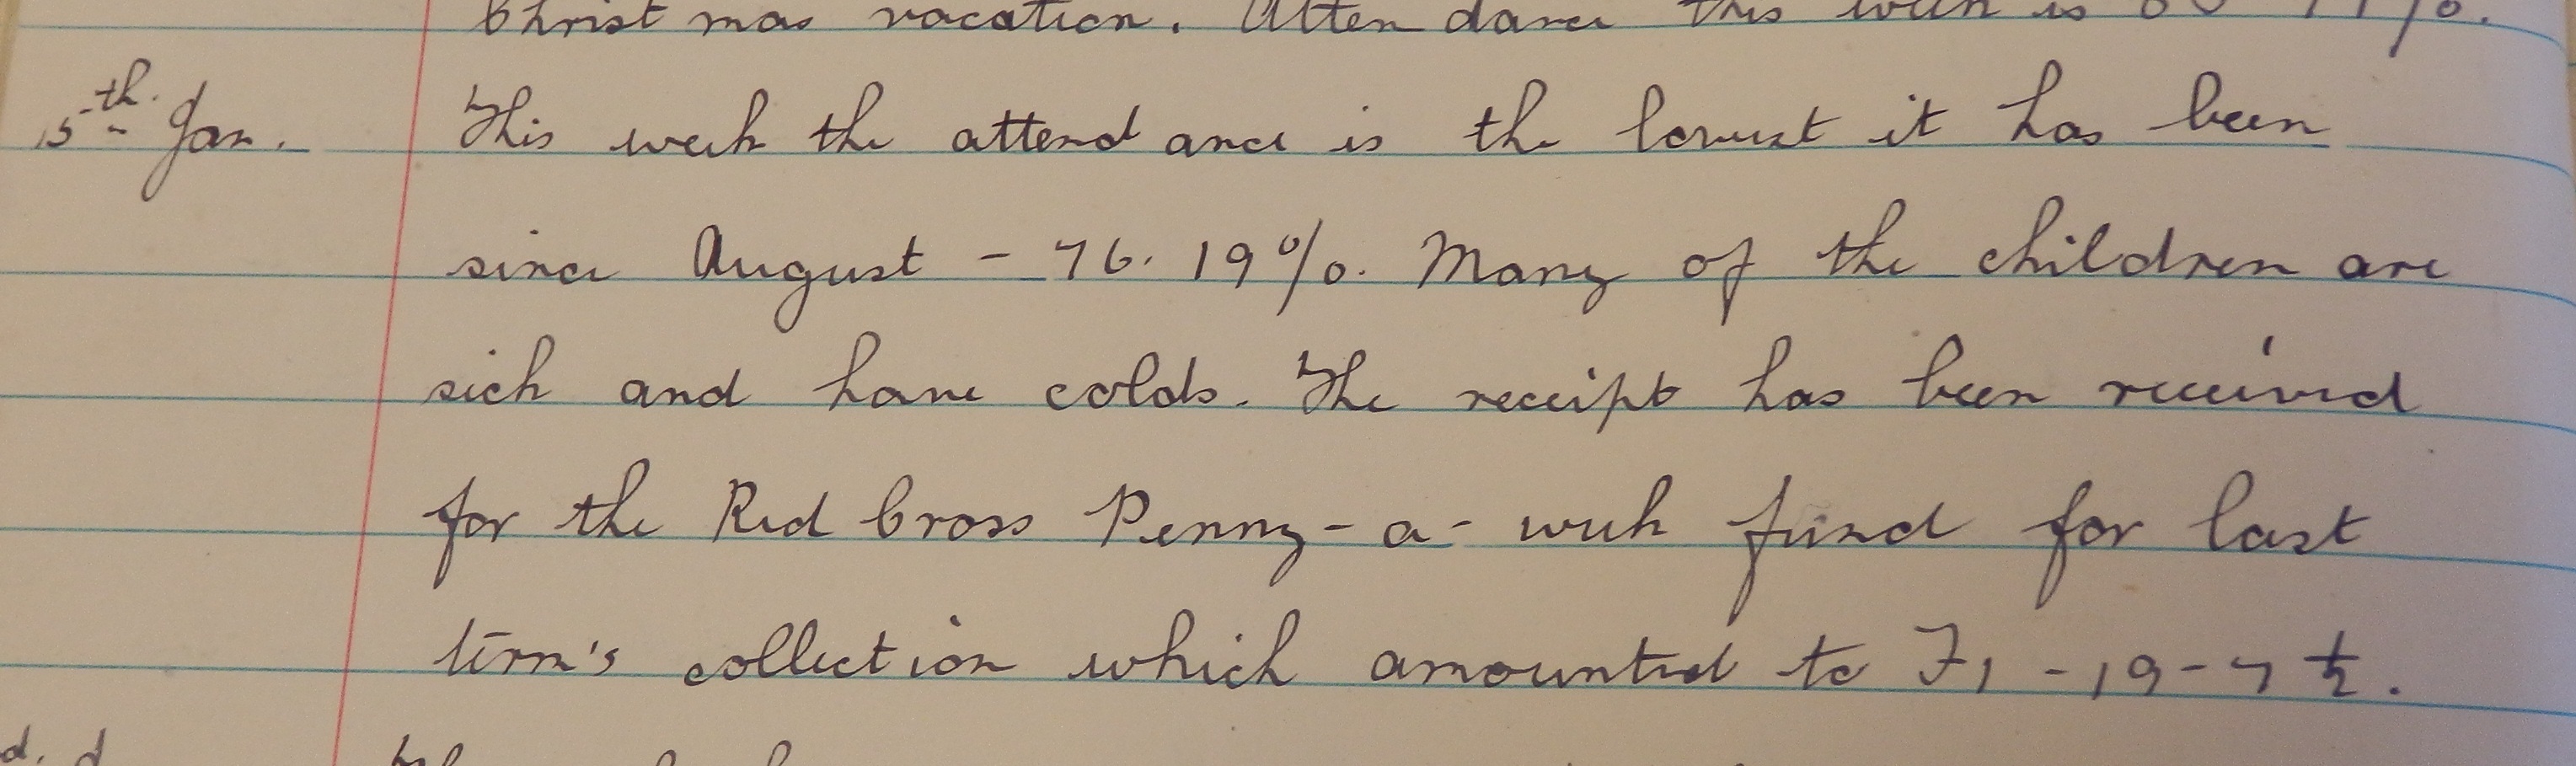 Christmas vacation. Attendance this week is
15th Jan. This week the attendance is the lowest it has been
since August - 76.19%. Many of the children are
sick and have colds. The receipt has been received
for the Red Cross Penny-a-week fund for last
term's collection which amounted to £1-19-7½.